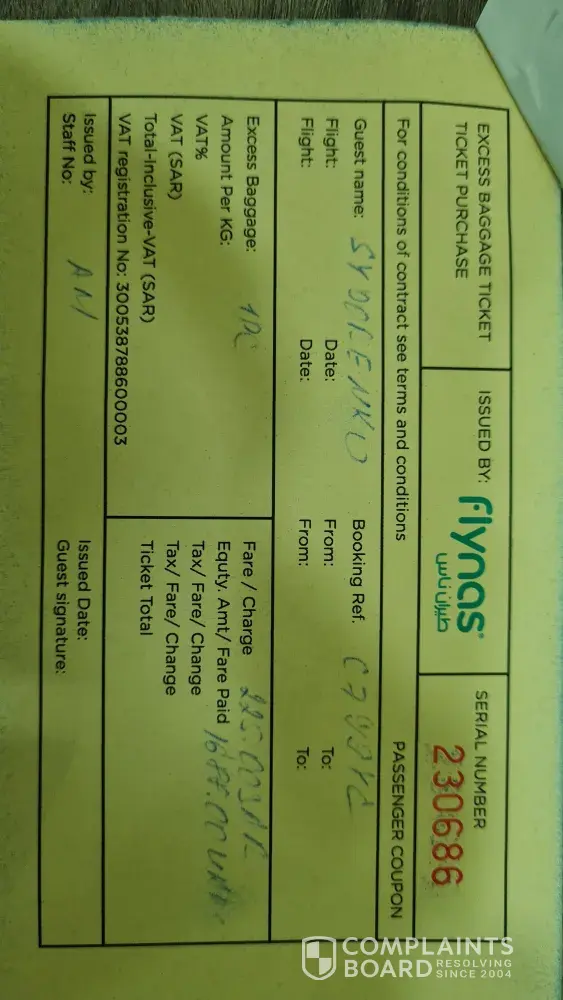 EXCESS BAGGAGE TICKET
TICKET PURCHASE
ISSUED BY:
flynas
طيران ناس
SERIAL NUMBER
230686
For conditions of contract see terms and conditions
PASSENGER COUPON
Guest name: Booking Ref.
Flight: Date: From: To:
Flight: Date: From: To:
Excess Baggage: Fare / Charge 225.00 SAR
Amount Per KG: Equty. Amt/ Fare Paid
VAT% Tax/ Fare/ Change
VAT (SAR) Tax/ Fare/ Change
Total-Inclusive-VAT (SAR) Ticket Total
VAT registration No: 300538788600003
Issued by: Issued Date:
Staff No: AM Guest signature:
COMPLAINTS
BOARD RESOLVING
SINCE 2004